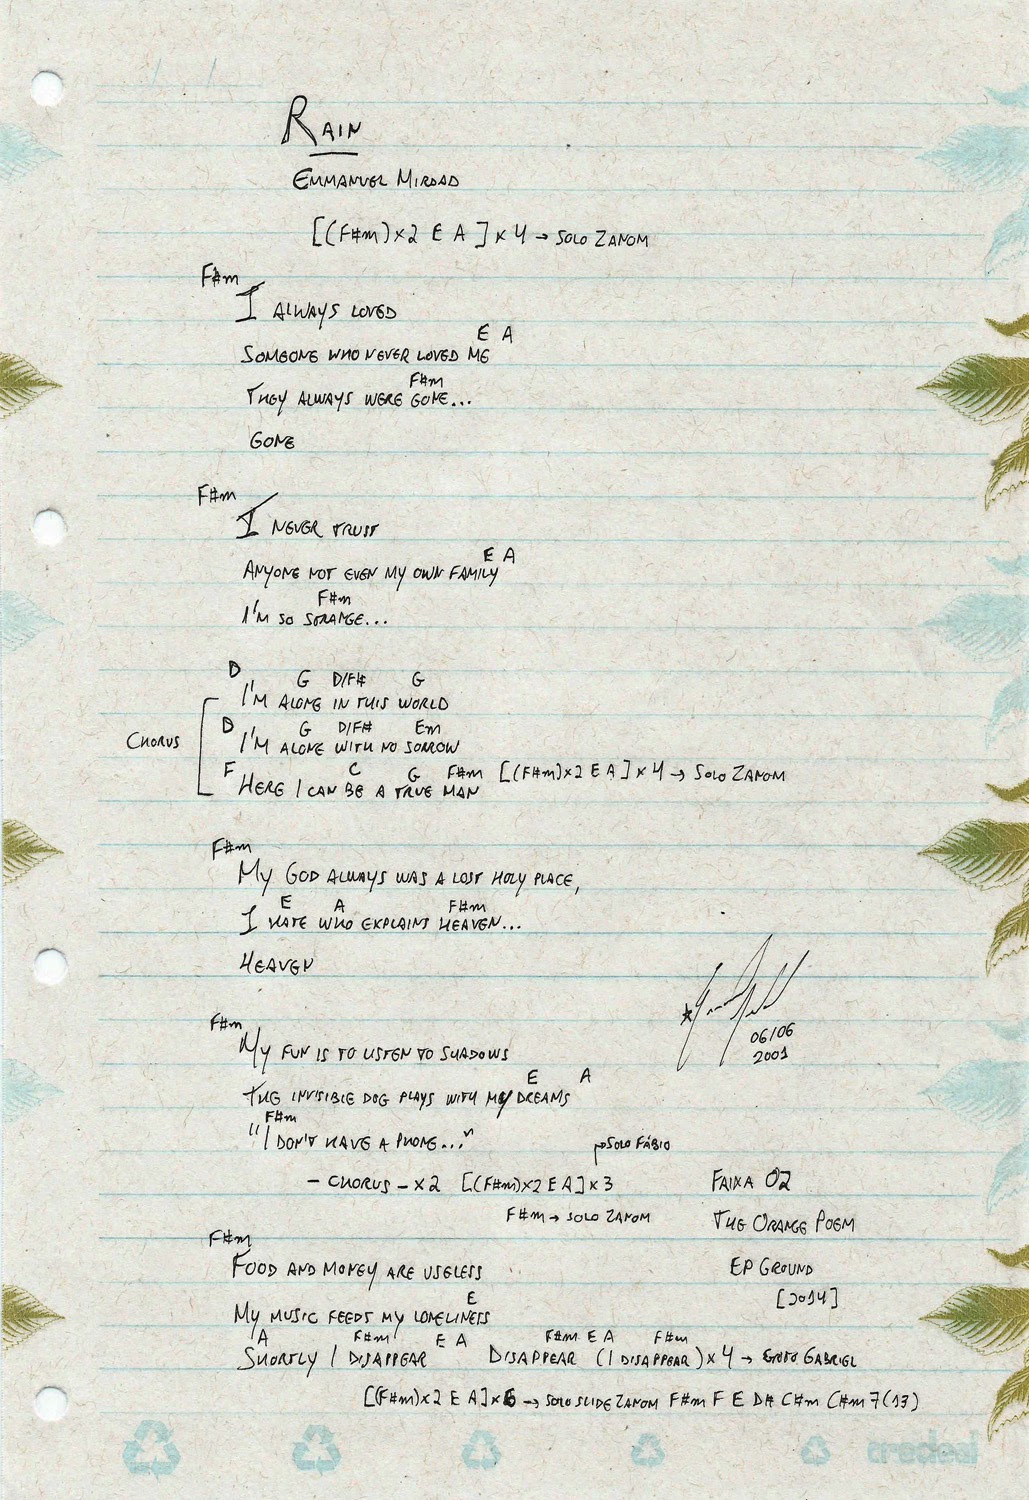 RAIN
EMMANUEL MIRDAD
[(F#m)x2 E A]x4 → SOLO ZANOM
F#m
I ALWAYS LOVED
E A
SOMEONE WHO NEVER LOVED ME
F#m
THEY ALWAYS WERE GONE...
GONE
F#m
I NEVER TRUST
E A
ANYONE NOT EVEN MY OWN FAMILY
F#m
I'M SO STRANGE...
D G D/F# G
I'M ALONE IN THIS WORLD
D G D/F# Em
CHORUS I'M ALONE WITH NO SORROW
F C G F#m [(F#m)x2 E A]x4 → SOLO ZANOM
HERE I CAN BE A TRUE MAN
F#m
MY GOD ALWAYS WAS A LOST HOLY PLACE,
E A F#m
I HATE WHO EXPLAINS HEAVEN...
HEAVEN
06/06
2001
F#m
MY FUN IS TO LISTEN TO SHADOWS
E A
THE INVISIBLE DOG PLAYS WITH MY DREAMS
F#m
"I DON'T HAVE A PHONE..."
→ SOLO FÁBIO
- CHORUS - x2 [(F#m)x2 E A]x3
F#m → SOLO ZANOM
FAIXA 02
THE ORANGE POEM
EP GROUND
[2014]
F#m
FOOD AND MONEY ARE USELESS
E
MY MUSIC FEEDS MY LONELINESS
A F#m E A F#m E A F#m
SHORTLY I DISAPPEAR DISAPPEAR (I DISAPPEAR)x4 → GABRIEL
[(F#m)x2 E A]x6 → SOLO SLIDE ZANOM F#m F E D# C#m C#m7(13)
credeal